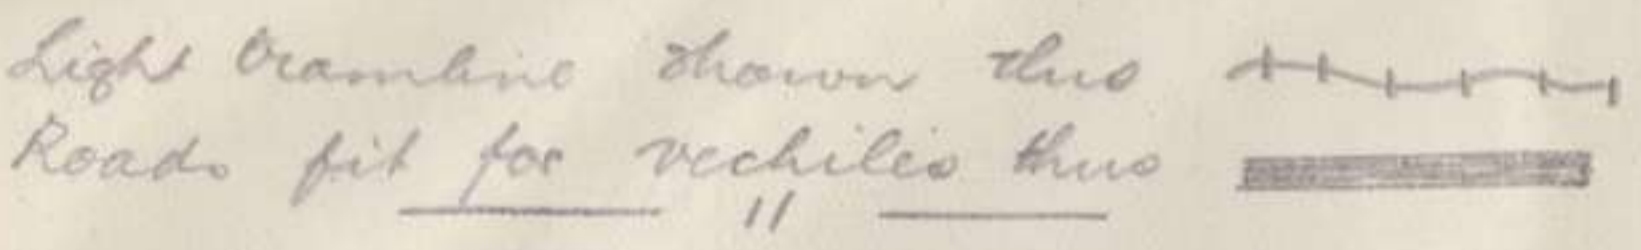 Light tramline shown thus
Roads fit for vechiles thus
— " —